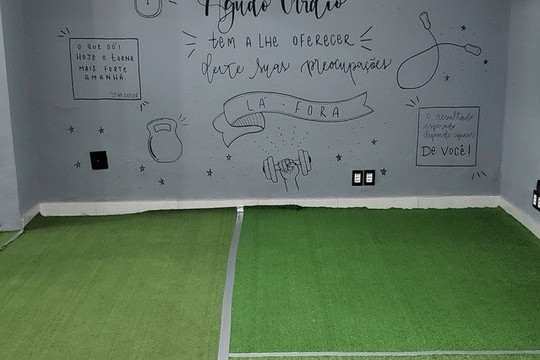 TEM A LHE OFERECER
deixe suas preocupações
LÁ FORA
O QUE DÓI
HOJE O TORNA
MAIS FORTE
AMANHÃ
O resultado
esperado
depende apenas
DE VOCÊ!